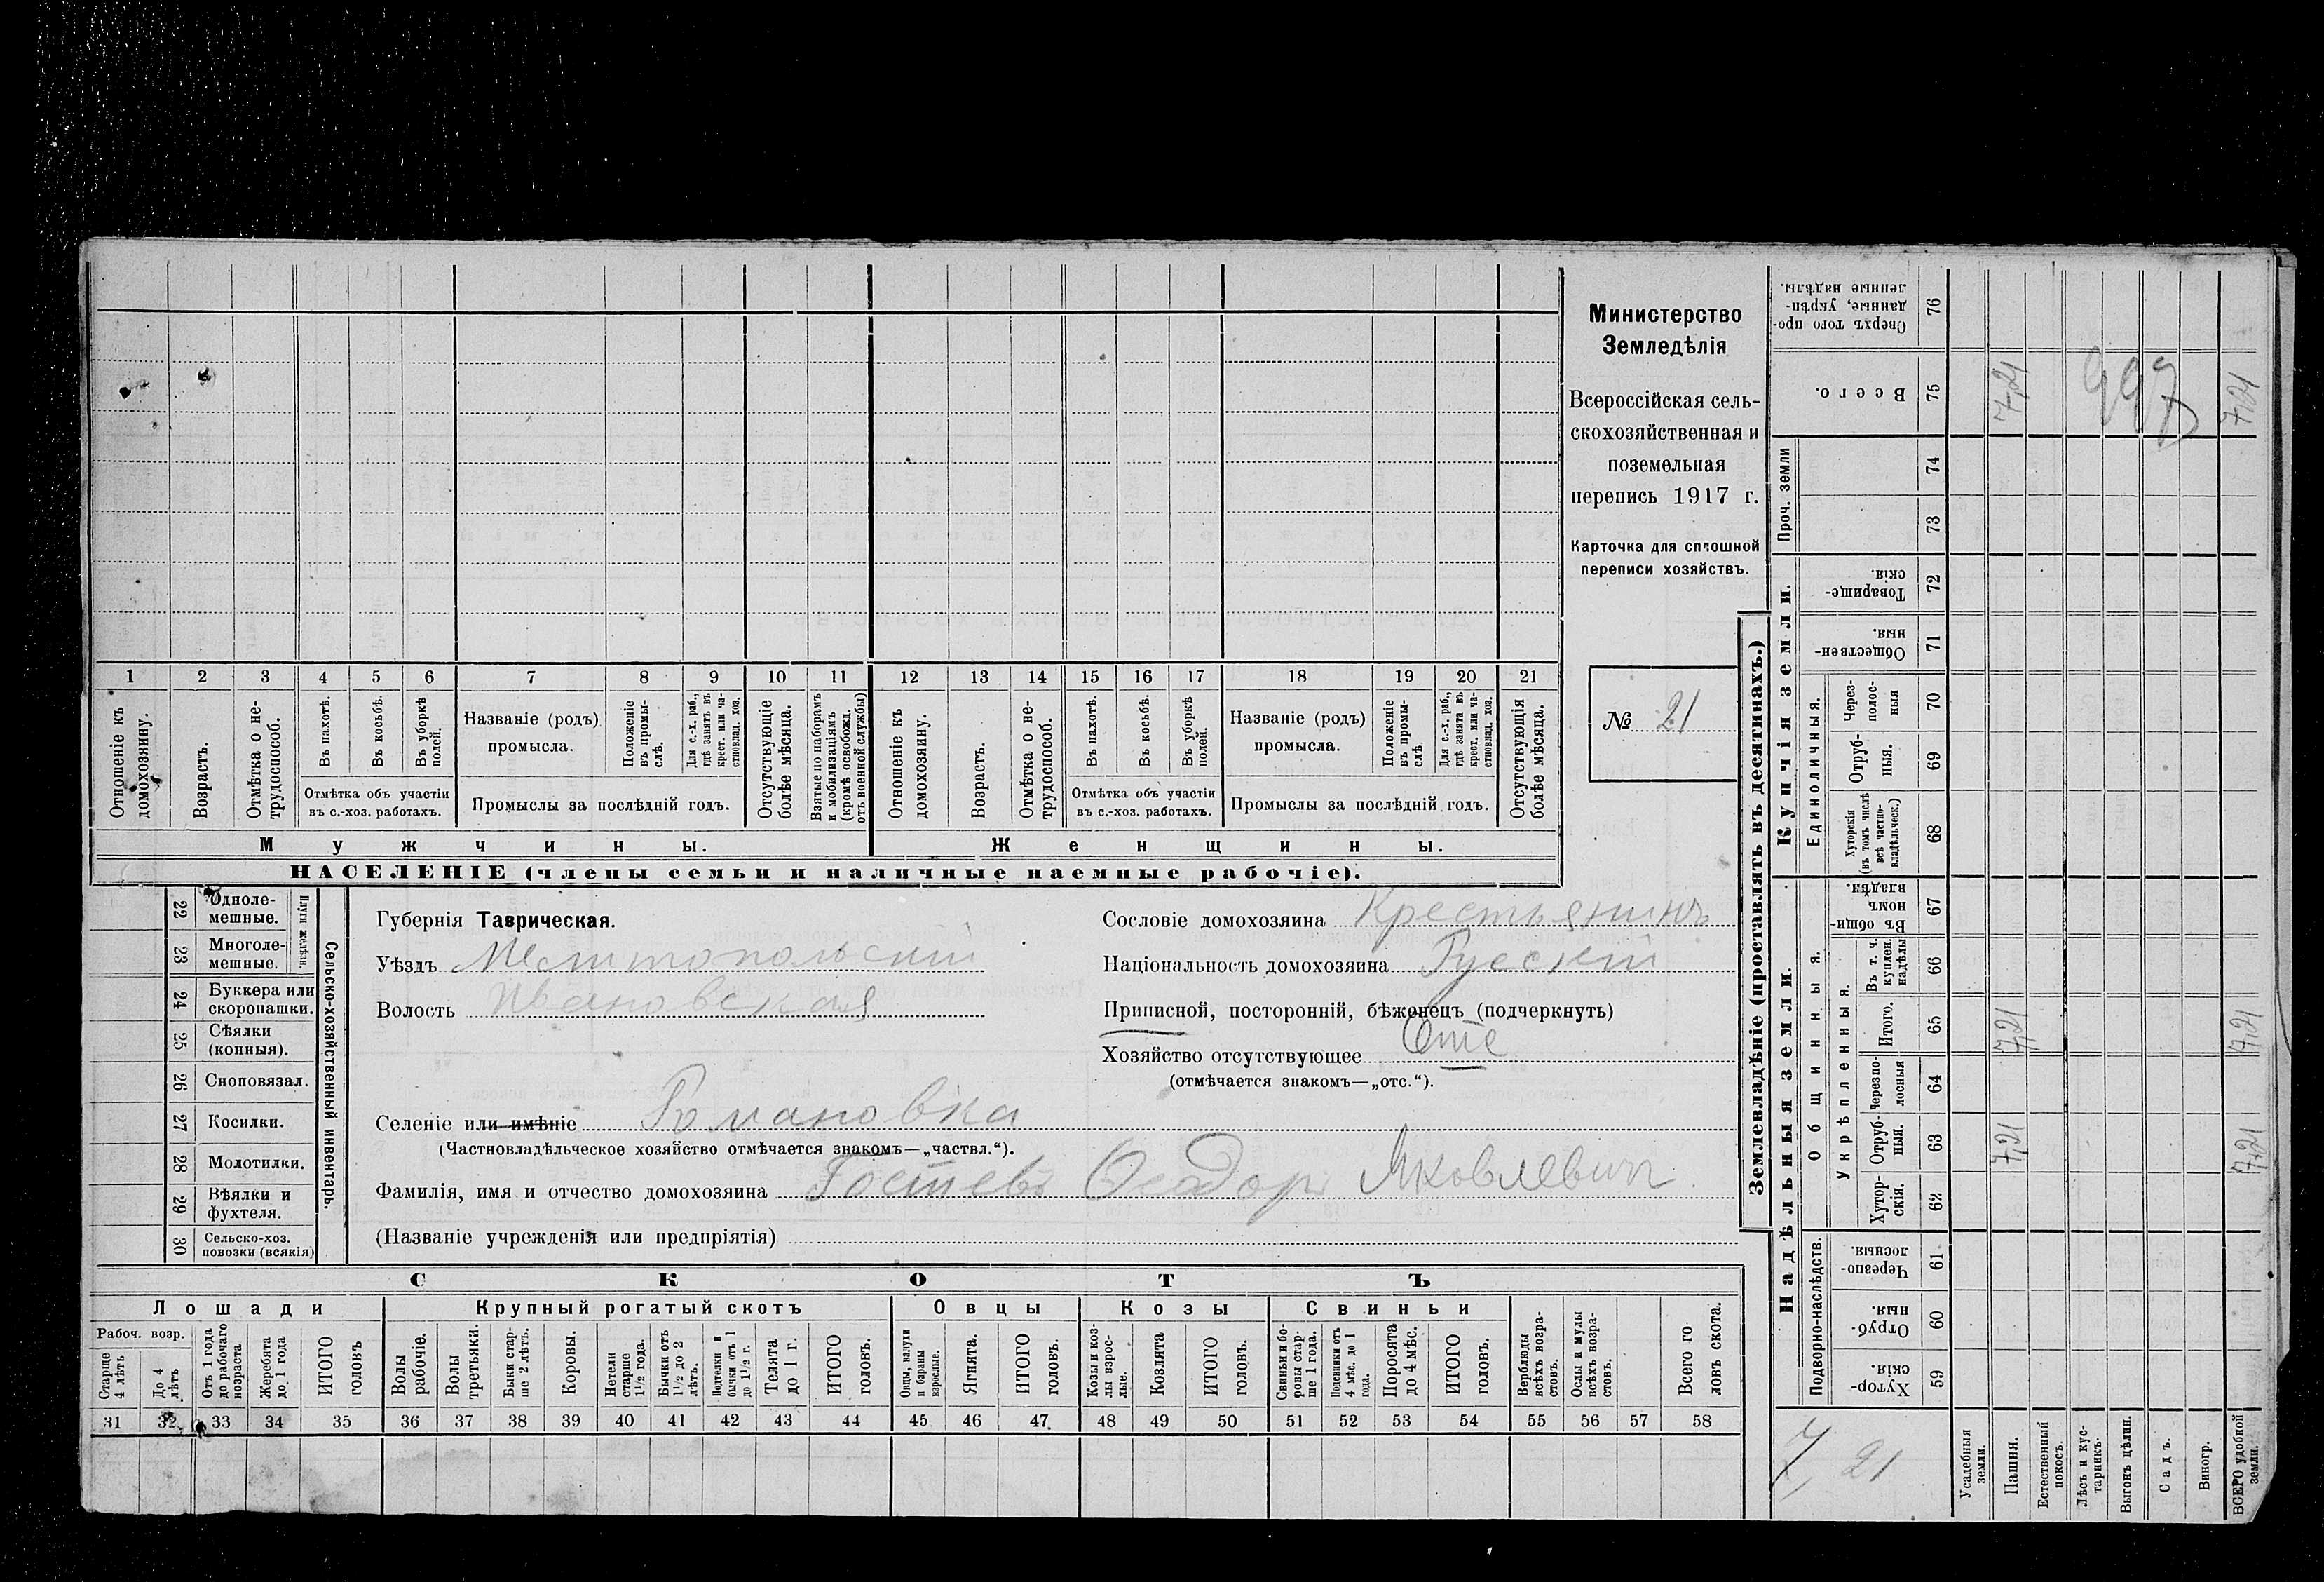 1 2 3 4 5 6 7 8 9 10 11 12 13 14 15 16 17 18 19 20 21
Отношеніе къ домохозяину.
Возрастъ.
Отмѣтка о не-
трудоспособ.
Въ пахотѣ.
Въ косьбѣ.
Въ уборкѣ
полей.
Отмѣтка объ участіи
въ с.-хоз. работахъ.
Названіе (родъ)
промысла.
Положеніе
въ промы-
слѣ.
Для с.-х. раб.,
гдѣ занятъ въ
крест. или ча-
стновлад. хоз.
Промыслы за послѣдній годъ.
Отсутствующіе
болѣе мѣсяца.
Взятые по наборамъ
и мобилизаціямъ
(кромѣ освобожд.
отъ военной службы)
Отношеніе къ
домохозяину.
Возрастъ.
Отмѣтка о не-
трудоспособ.
Въ пахотѣ.
Въ косьбѣ.
Въ уборкѣ
полей.
Отмѣтка объ участіи
въ с.-хоз. работахъ.
Названіе (родъ)
промысла.
Положеніе
въ промы-
слѣ
Для с.-х. раб.,
гдѣ занята въ
крест. или ча-
стновлад. хоз.
Промыслы за послѣдній годъ.
Отсутствующія
болѣе мѣсяца.
Мужчины.
Женщины.
НАСЕЛЕНІЕ (члены семьи и наличные наемные рабочіе).
Министерство
Земледѣлія
Всероссійская сель-
скохозяйственная и
поземельная
перепись 1917 г.
Карточка для сплошной
переписи хозяйствъ.
№ 21
22 Одноле-
мешные.
23 Многоле-
мешные.
Плуги желѣзн.
24 Буккера или
скоропашки.
25 Сѣялки
(конныя).
26 Сноповязал.
27 Косилки.
28 Молотилки.
29 Вѣялки и
фухтеля.
30 Сельско-хоз.
повозки (всякія)
Сельско-хозяйственный инвентарь.
Губернія Таврическая.
Уѣздъ Мелитопольский
Волость Ивановская
Сословіе домохозяина Крестьянинъ
Національность домохозяина Русский
Приписной, посторонній, бѣженецъ (подчеркнуть)
Хозяйство отсутствующее Отс
(отмѣчается знакомъ—„отс.“).
Селеніе или имѣніе Романовка
(Частновладѣльческое хозяйство отмѣчается знакомъ—„частвл.“).
Фамилія, имя и отчество домохозяина Гостевъ Феодоръ Яковлевич
(Названіе учрежденія или предпріятія)
СКОТЪ
Лошади
Крупный рогатый скотъ
Овцы
Козы
Свиньи
Рабоч. возр.
Старше
4 лѣтъ
До 4
лѣтъ
Отъ 1 года
до рабочаго
возраста
Жеребята
до 1 года
ИТОГО
головъ
Волы
рабочіе.
Волы
третьяки.
Быки стар-
ше 2 лѣтъ.
Коровы.
Нетели
старше
1½ года.
Бычки отъ
1½ до 2
лѣтъ.
Подтелки и
бычки отъ 1
до 1½ г.
Телята
до 1 г.
ИТОГО
головъ.
Овцы, валухи
и бараны
взрослые.
Ягнята.
ИТОГО
головъ.
Козы и коз-
лы взрос-
лые.
Козлята
ИТОГО
головъ.
Свиньи и бо-
ровы стар-
ше 1 года.
Подсвинки отъ
4 мѣс. до 1
года.
Поросята
до 4 мѣс.
ИТОГО
головъ.
Верблюды
всѣхъ возра-
стовъ.
Ослы и мулы
всѣхъ возра-
стовъ.
Всего го
ловъ скота.
31 32 33 34 35 36 37 38 39 40 41 42 43 44 45 46 47 48 49 50 51 52 53 54 55 56 57 58
Землевладѣніе (проставлять въ десятинахъ.)
Надѣльныя земли.
Купчія земли.
Проч. земли
Подворно-наслѣдств.
Общинныя.
Укрѣпленныя.
Единоличныя.
Хутор-
скія.
59
Отруб-
ныя.
60
Черезпо-
лосныя.
61
Хутор-
скія.
62
Отруб-
ныя.
63
Черезпо-
лосныя
64
Итого.
65
Въ т. ч.
куплен.
надѣлы
66
Въ общин-
номъ
владѣн.
67
Хуторскія
(въ томъ числѣ
всѣ частно-
владѣльческ.)
68
Отруб-
ныя.
69
Через-
полос-
ныя
70
Обществен-
ныя.
71
Товарище-
скія.
72
73
74
Всего.
75
Сверхъ того про-
данные, укрѣп-
ленные надѣлы.
76
Усадебныя
земли.
Пашня. 7,21 7,21 7,21
Естественный
покосъ.
Лѣсъ и кус-
тарникъ.
Выгонъ цѣлин.
Садъ.
Виногр.
ВСЕГО удобной
земли. 7,21 7,21 7,21
997
7,21